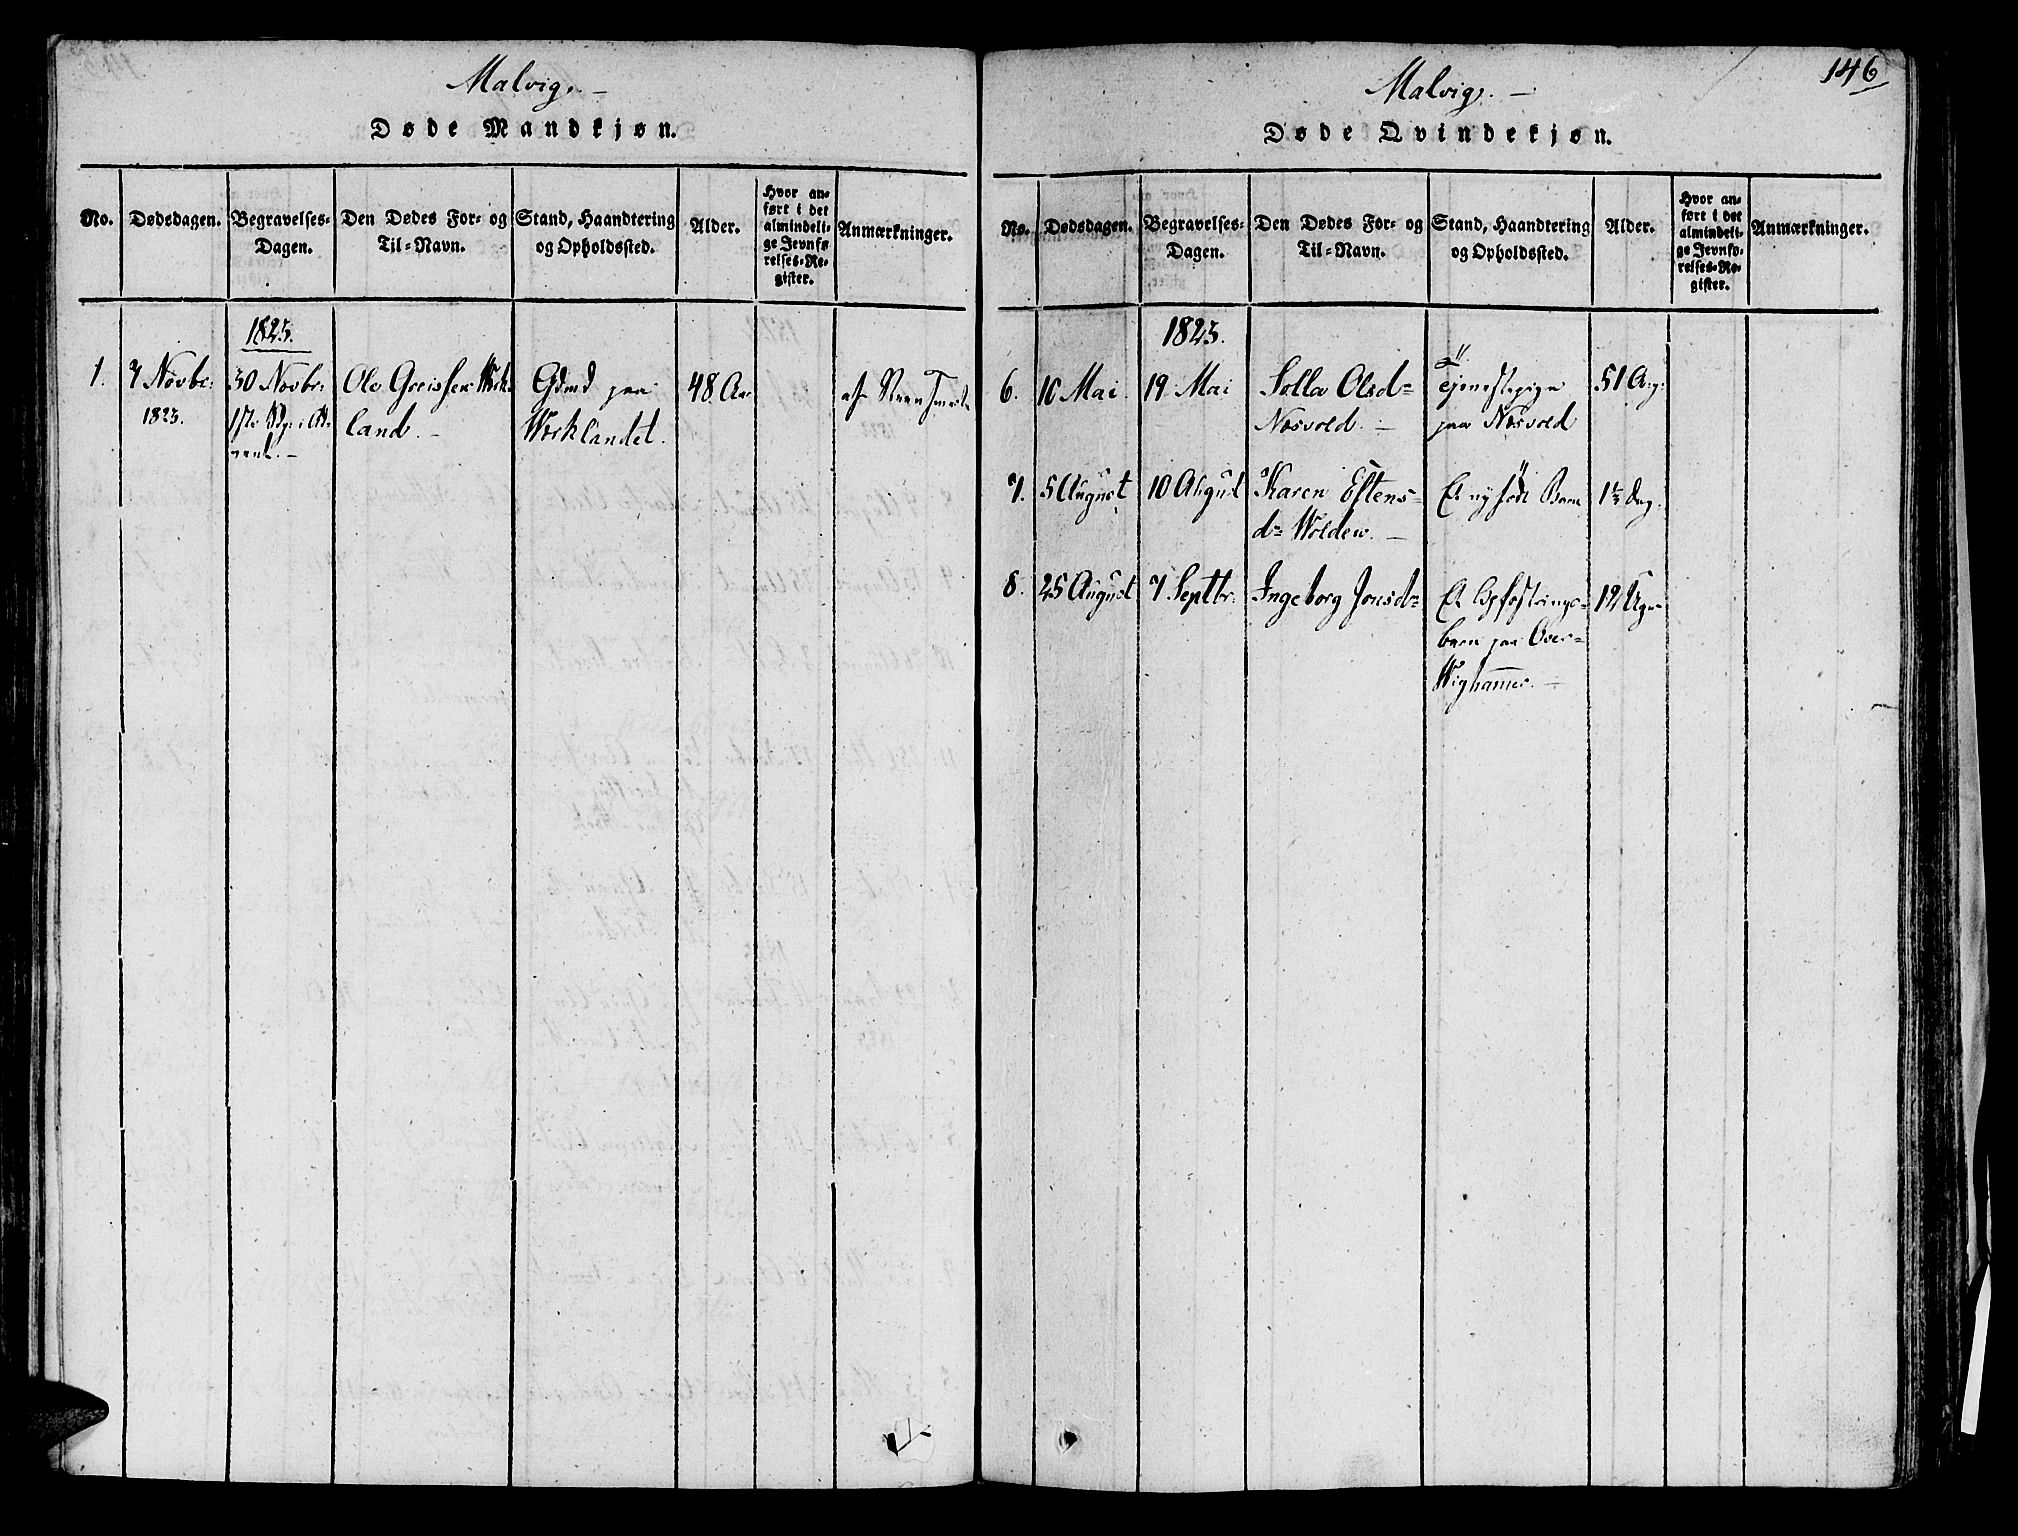 Malvig. –
Døde Mandkjøn.
No.
Dødsdagen.
Begravelses-
Dagen.
Den Dødes For- og
Til-Navn.
Stand, Haandtering
og Opholdssted.
Alder.
Hvor an-
ført i det
almindeli-
ge Jevnfø
relses-Re-
gister.
Anmærkninger.
1823.
1.
7 Novbr:
1823.
30 Novbr:
Ole Greissen Work-
land. –
Gdmd paa
Worklandet.
48 Aar
Malvig. –
146
Døde Qvindekjøn.
No.
Dødsdagen.
Begravelses-
Dagen.
Den Dødes For- og
Til-Navn.
Stand, Haandtering
og Opholdssted.
Alder.
Hvor an-
ført i det
almindeli-
ge Jevnfø-
relses-Re-
gister.
Anmærkninger.
1823.
6.
10 Mai
19 Mai
Olsd=
Næsvold. –
Tjenestepige
paa Næsvold
51 Aar
7.
5 August
10 August
Karen Estens-
d= Wolden. –
Et nyfødt Barn
1½ Dag.
8.
25 August
7 Septbr:
Ingeborg Jonsd=
Et Opfostrings-
barn paa Over-
Wighammer. –
12 Uger